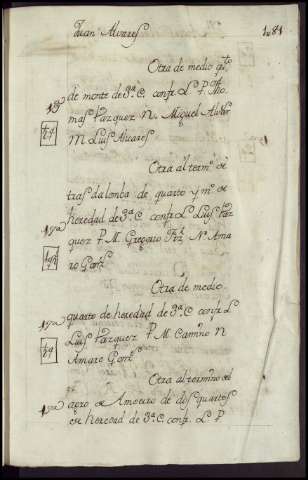 Juan Alvares
Otra de medio q.to
de monte de 3.ª C. confr. L. P. Tho
mas Vazquez N. Miguel Alvar.
M. Luis Alvares
Otra al term.º de
tras da lomba de quarto y m.º de
heredad de 3.ª C. confr. L. Luis Vaz
quez P. M. Gregorio Frz N. Ama
ro Gonz.
Otra de medio
quarto de heredad de 3.ª C. confr. L.
Luis Vazquez P. M. Camino N
Amaro Gonz.
Otra al termino del
agro de Amoeiro de dos quartos
de heredad de 3.ª C. confr. L. P